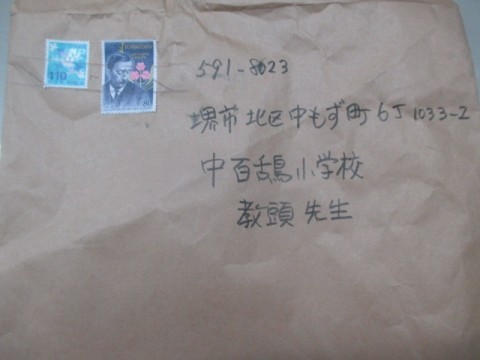 110
80
591-8023
堺市北区中もず町6丁1033-2
中百舌鳥小学校
教頭先生